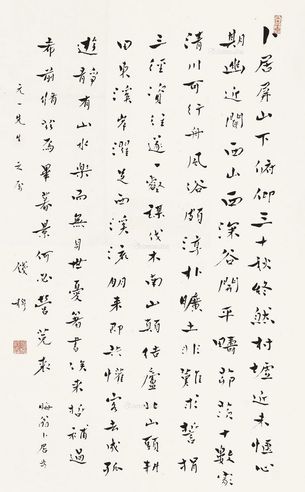 卜居屏山下俯仰三十秋終然村墟近未愜心
期幽近聞西山西深谷開平疇茆茨十數家
清川可行舟風俗頗淳朴曠土非難求誓捐
三徑資往遂一壑謀伐木南山顛結廬北山頭耕
田東溪岸濯足西溪流朋來即共懽客去成孤
遊靜有山水樂而無身世憂著書俟來哲補過
希前脩茲焉畢暮景何必營菟裘 晦翁卜居詩
元一先生之属 錢穆